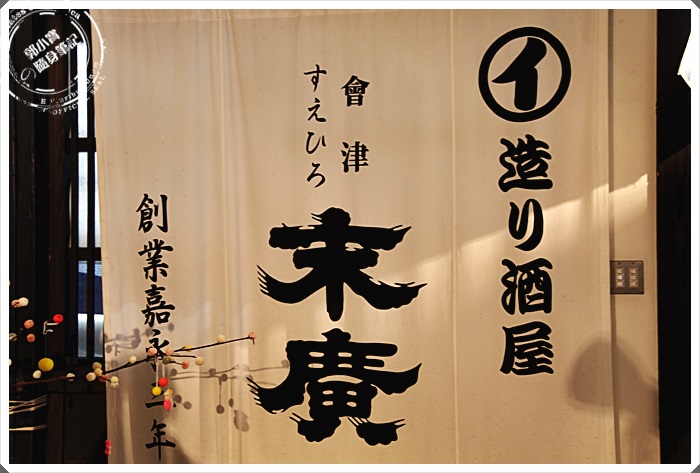 イ
造り酒屋
會津
すえひろ
末廣
創業嘉永三年
郭小寶
の隨身筆記